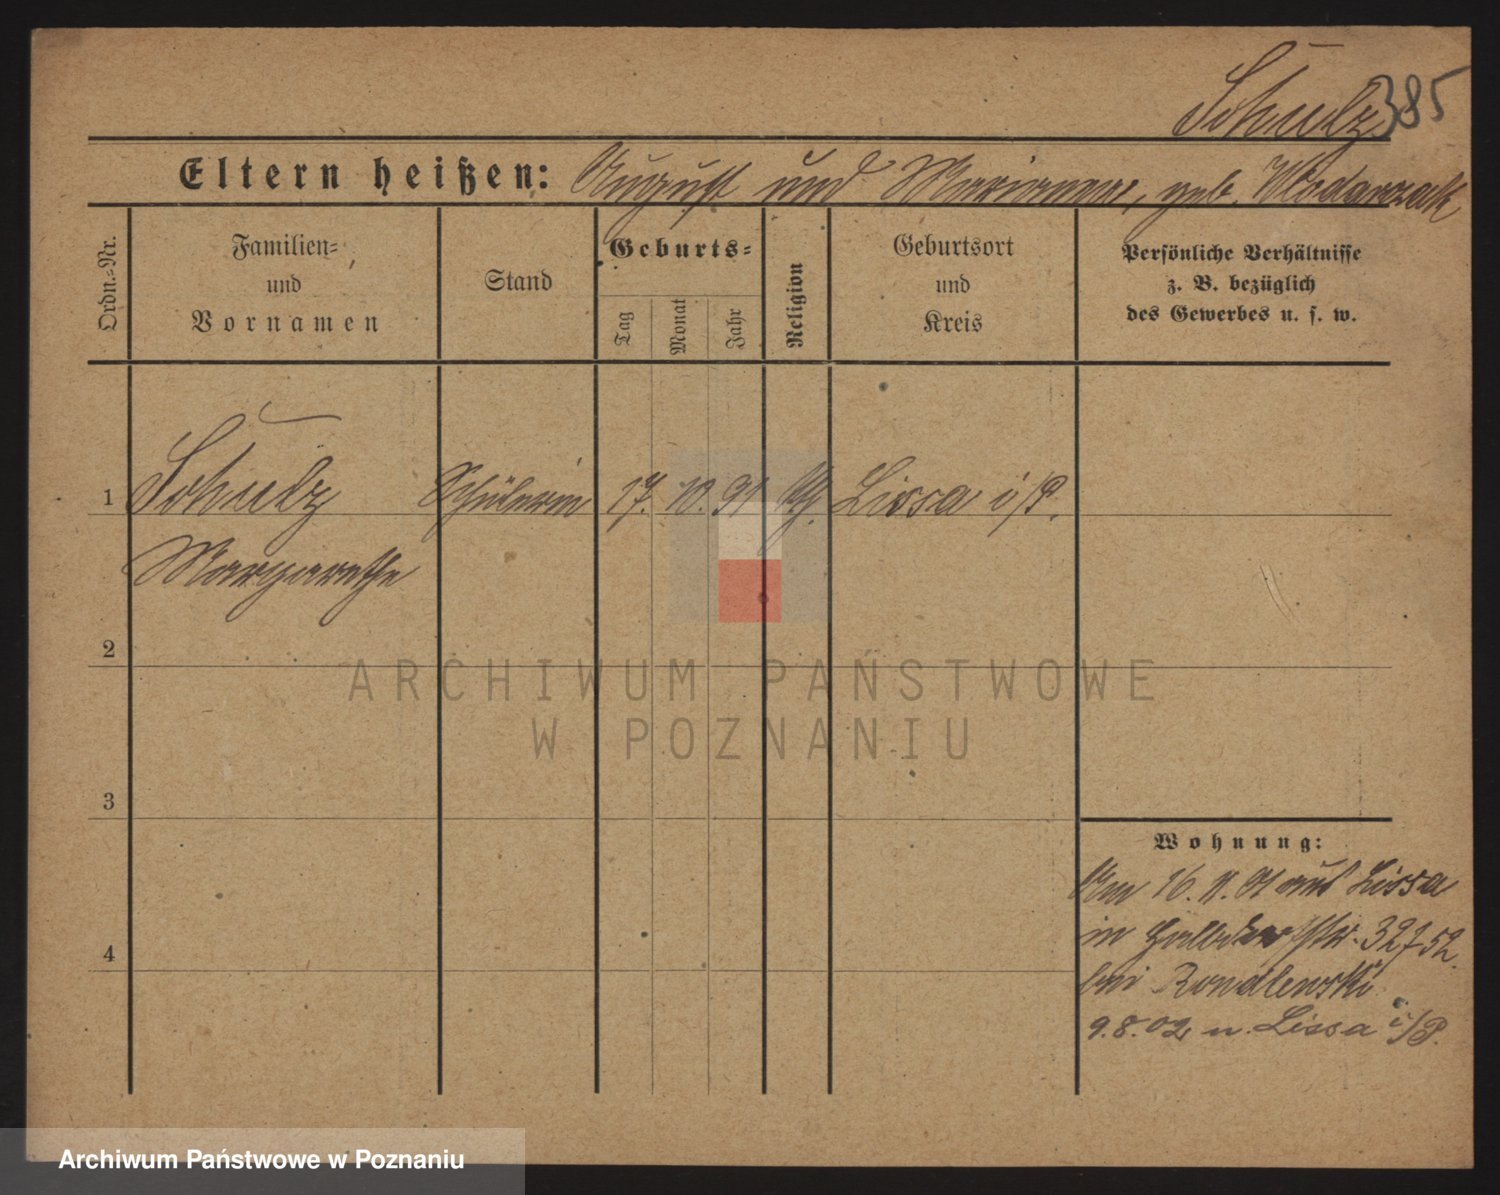 Schulz 385
Eltern heißen: August und Marianne, geb. Wlodarczak
Ordn.-Nr.
Familien- und Vornamen
Stand
Geburts-
Tag
Monat
Jahr
Religion
Geburtsort und Kreis
Persönliche Verhältnisse
z. B. bezüglich
des Gewerbes u. s. w.
1 Schulz Schülerin 17. 10. 91 Lissa i/P.
Margarethe
2
3
4
Wohnung:
Am 16. 11. 01 aus Lissa
in 32
bei
9. 8. 02 n. Lissa i/P.
ARCHIWUM PAŃSTWOWE
W POZNANIU
Archiwum Państwowe w Poznaniu